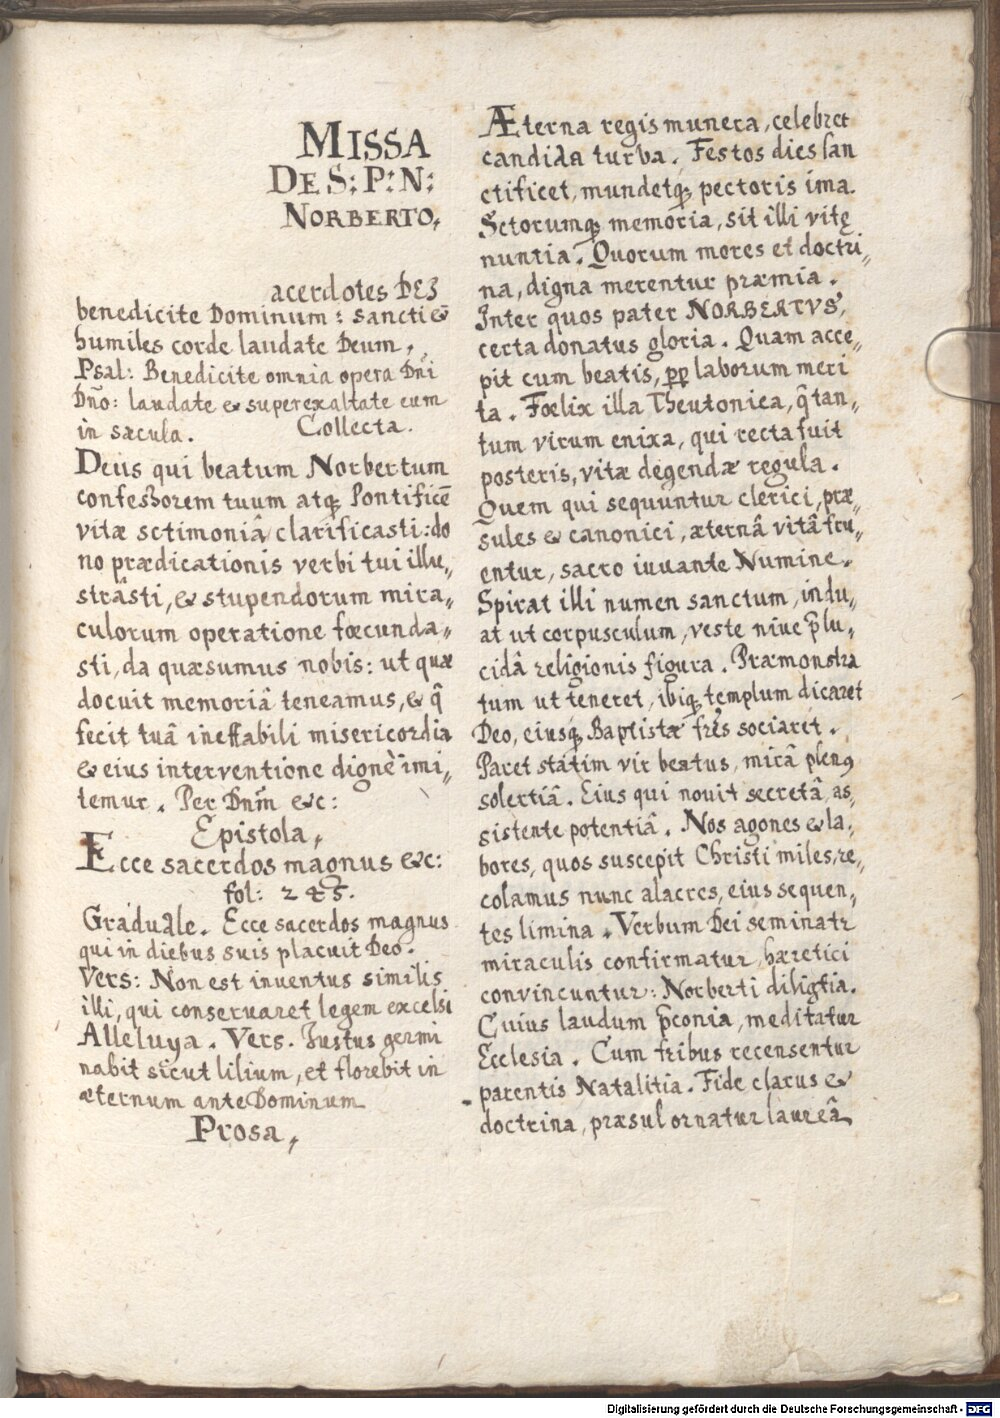 MISSA
DE S: P: N:
NORBERTO,
acerdotes DEI
benedicite Dominum: sancti &
humiles corde laudate Deum,
Psal: Benedicite omnia opera Dñi
Dño: laudate & superexaltate eum
in sæcula. Collecta.
Deus qui beatum Norbertum
confessorem tuum atq; Pontificē
vitæ sctimoniâ clarificasti: do
no prædicationis verbi tui illu„
strâsti, & stupendorum mira„
culorum operatione fœcunda„
sti, da quæsumus nobis: ut quæ
docuit memoriâ teneamus, & q̃
fecit tuâ ineffabili misericordia
& eius interventione dignè imi„
temur. Per Dnm̃ &c:
Epistola,
Ecce sacerdos magnus &c:
fol: 245.
Graduale. Ecce sacerdos magnus
qui in diebus suis placuit Deo.
Vers: Non est inventus similis
illi, qui conservaret legem excelsi
Alleluya. Vers. Justus germi
nabit sicut lilium, et florebit in
æternum ante Dominum
Prosa,
Æterna regis munera, celebret
candida turba. Festos dies san
ctificet, mundetq; pectoris ima.
Sctorumq; memoria, sit illi vitę
nuntia. Quorum mores et doctri„
na, digna merentur præmia.
Inter quos pater NORBERTVS,
certa donatus gloria. Quam acce„
pit cum beatis, pp laborum meri
ta. Fœlix illa Theutonica, q̃ tan„
tum virum enixa, qui recta fuit
posteris, vitæ degendæ regula.
Quem qui sequuntur clerici, præ
sules & canonici, æternâ vitâ fru„
entur, sacro iuvante Numine.
Spirat illi numen sanctum, indu„
at ut corpusculum, veste niue p̃lu„
cidâ religionis figura. Præmonstra
tum ut teneret, ibiq; templum dicaret
Deo, eiusq; Baptistæ frēs sociaret.
Paret statim vir beatus, mirâ plenus
solertiâ. Eius qui novit secretâ, as„
sistente potentiâ. Nos agones & la„
bores, quos suscepit Christi miles, re„
colamus nunc alacres, eius sequen„
tes limina. Verbum Dei seminatr
miraculis confirmatur, hæretici
convincuntur: Norberti diligẽtia.
Cuius laudum p̃conia, meditatur
Ecclesia. Cum fribus recensentur
parentis Natalitia. Fide clarus &
doctrina, præsul ornatur laureâ
Digitalisierung gefördert durch die Deutsche Forschungsgemeinschaft - DFG